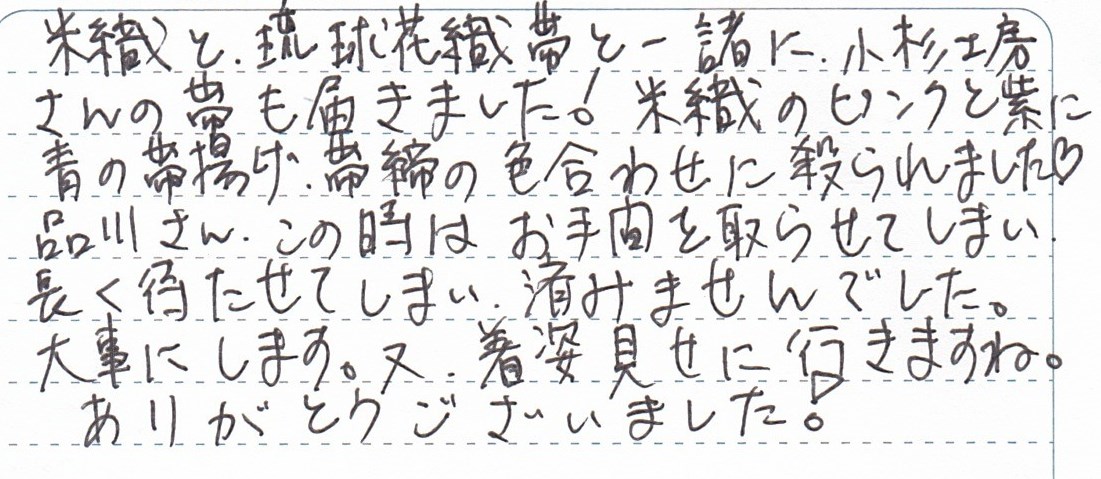 米織と、琉球花織帯と一諸に、小杉工房
さんの帯も届きました! 米織のピンクと紫に
青の帯揚げ、帯締の色合わせに殺られました♡
品川さん、この時はお手間を取らせてしまい、
長く待たせてしまい、済みませんでした。
大事にします。又、着姿見せに行きますね。
ありがとうございました!